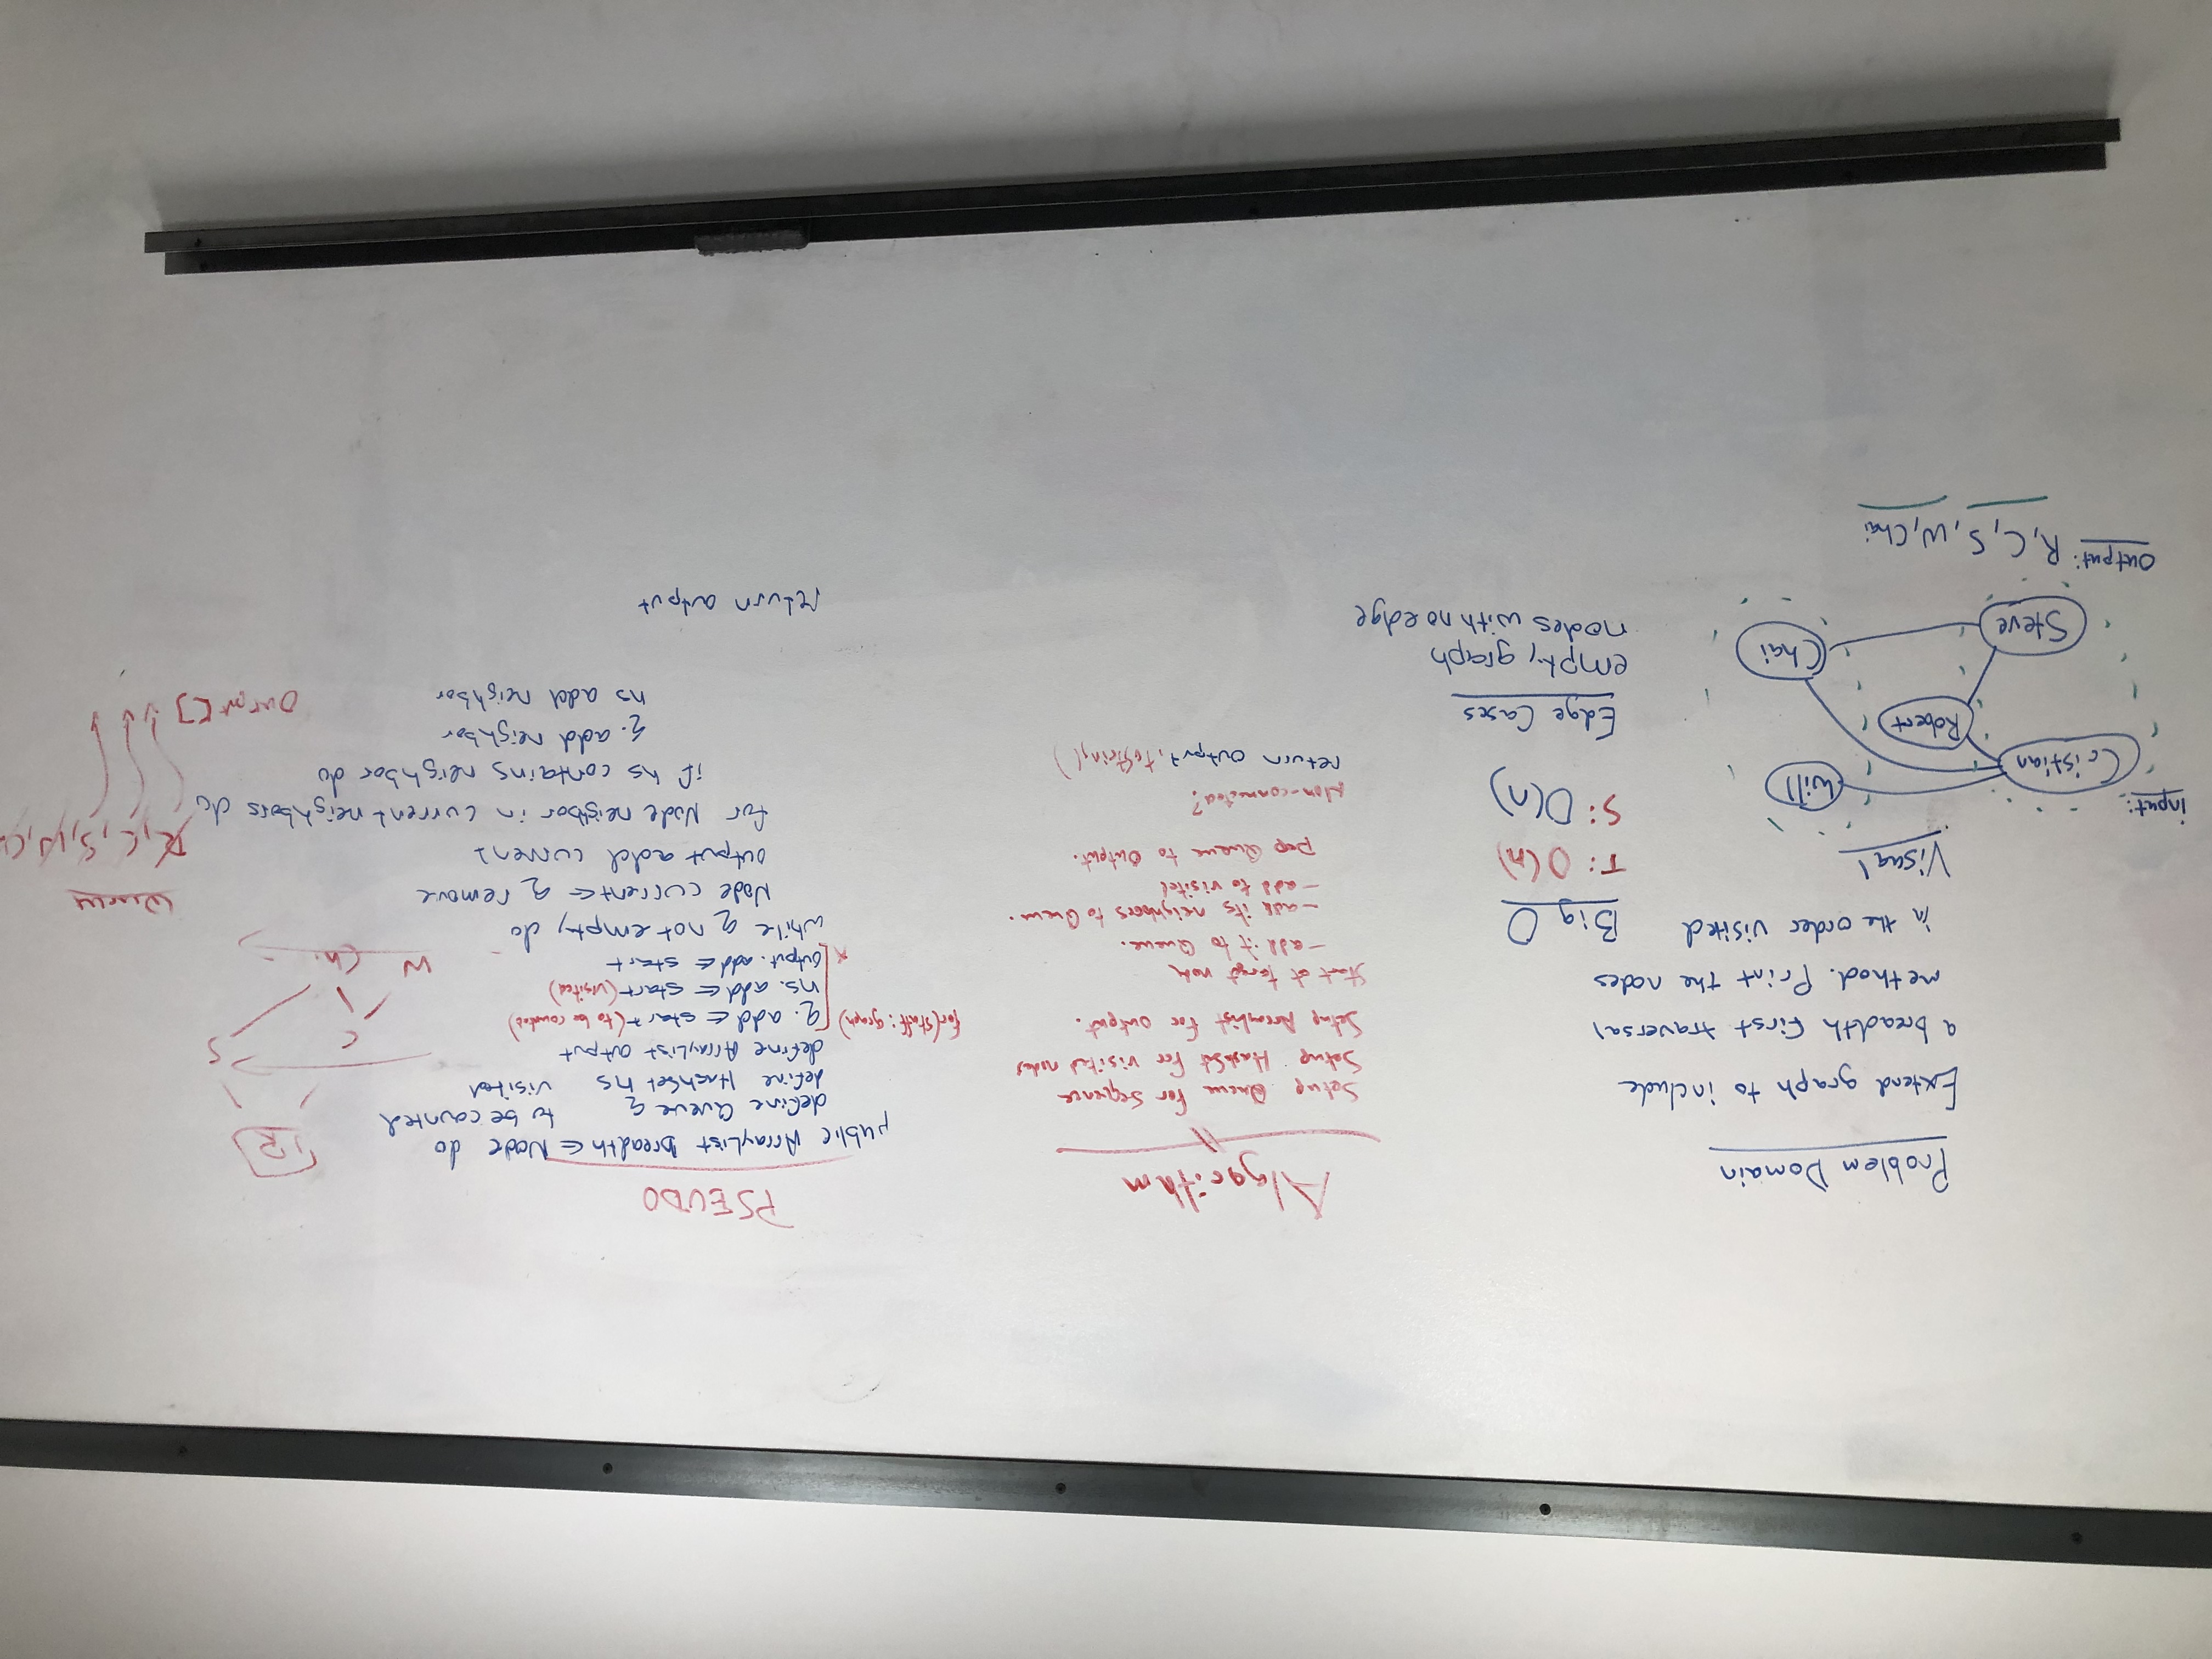 Problem Domain
Extend graph to include
a breadth first traversal
method. Print the nodes
in the order visited
Visual
input:
Cristian
Will
Robert
Chai
Steve
Output: R, C, S, W, Chai
Big O
T: O(n)
S: O(n)
Edge Cases
empty graph
nodes with no edge
Algorithm
Setup Queue for sequence
Setup HashSet for visited nodes
Setup ArrayList for output.
Start at target node
- add it to Queue.
- add its neighbors to Queue.
- add to visited
pop Queue to output.
Non-connected?
return output.toString()
PSEUDO
public ArrayList Breadth ← Node do
define Queue q to be counted
define HashSet hs visited
define ArrayList output
for(staff: graph) q. add ← start (to be counted)
hs. add ← start (visited)
x output. add ← start
while q not empty do
Node current ← q remove
output add current
for Node neighbor in current neighbors do
if hs contains neighbor do
q. add neighbor
hs add neighbor
return output
R
C S
W Ch.
Queue
R, C, S, W, Ch
Output []